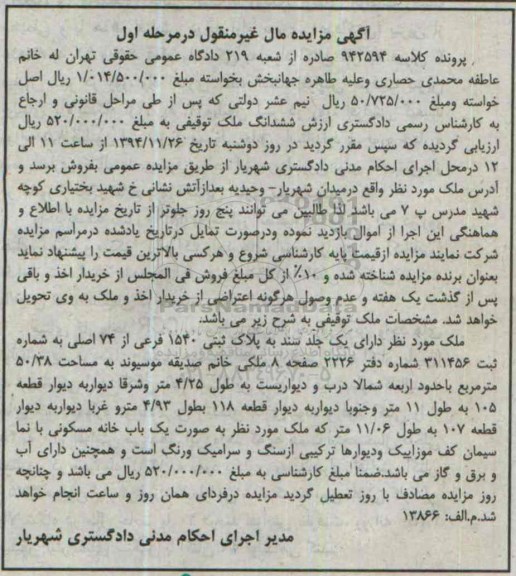 آگهی مزایده مال غیرمنقول درمرحله اول
پرونده کلاسه ۹۴۲۵۹۴ صادره از شعبه ۲۱۹ دادگاه عمومی حقوقی تهران له خانم
عاطفه محمدی حصاری وعلیه طاهره جهانبخش بخواسته مبلغ ۱/۰۱۴/۵۰۰/۰۰۰ ریال اصل
خواسته ومبلغ ۵۰/۷۲۵/۰۰۰ ریال نیم عشر دولتی که پس از طی مراحل قانونی و ارجاع
به کارشناس رسمی دادگستری ارزش ششدانگ ملک توقیفی به مبلغ ۵۲۰/۰۰۰/۰۰۰ ریال
ارزیابی گردیده که سپس مقرر گردید در روز دوشنبه تاریخ ۱۳۹۴/۱۱/۲۶ از ساعت ۱۱ الی
۱۲ درمحل اجرای احکام مدنی دادگستری شهریار از طریق مزایده عمومی بفروش برسد و
آدرس ملک مورد نظر واقع درمیدان شهریار- وحیدیه بعدازآتش نشانی خ شهید بختیاری کوچه
شهید مدرس پ ۷ می باشد لذا طالبین می توانند پنج روز جلوتر از تاریخ مزایده با اطلاع و
هماهنگی این اجرا از اموال بازدید نموده ودرصورت تمایل درتاریخ یادشده درمراسم مزایده
شرکت نمایند مزایده ازقیمت پایه کارشناسی شروع و هرکسی بالاترین قیمت را پیشنهاد نماید
بعنوان برنده مزایده شناخته شده و ۱۰٪ از کل مبلغ فروش فی المجلس از خریدار اخذ و باقی
پس از گذشت یک هفته و عدم وصول هرگونه اعتراضی از خریدار اخذ و ملک به وی تحویل
خواهد شد. مشخصات ملک توقیفی به شرح زیر می باشد:
ملک مورد نظر دارای یک جلد سند به پلاک ثبتی ۱۵۴۰ فرعی از ۷۴ اصلی به شماره
ثبت ۳۱۱۴۵۶ شماره دفتر ۲۳۲۶ صفحه ۸ ملکی خانم صدیقه موسیوند به مساحت ۵۰/۳۸
مترمربع باحدود اربعه شمالا درب و دیواریست به طول ۴/۲۵ متر وشرقا دیواربه دیوار قطعه
۱۰۵ به طول ۱۱ متر وجنوبا دیواربه دیوار قطعه ۱۱۸ بطول ۴/۹۳ مترو غربا دیواربه دیوار
قطعه ۱۰۷ به طول ۱۱/۰۶ متر که ملک مورد نظر به صورت یک باب خانه مسکونی با نما
سیمان کف موزاییک ودیوارها ترکیبی ازسنگ و سرامیک ورنگ است و همچنین دارای آب
و برق و گاز می باشد.ضمنا مبلغ کارشناسی به مبلغ ۵۲۰/۰۰۰/۰۰۰ ریال می باشد و چنانچه
روز مزایده مصادف با روز تعطیل گردید مزایده درفردای همان روز و ساعت انجام خواهد
شد.م.الف: ۱۳۸۶۶
مدیر اجرای احکام مدنی دادگستری شهریار